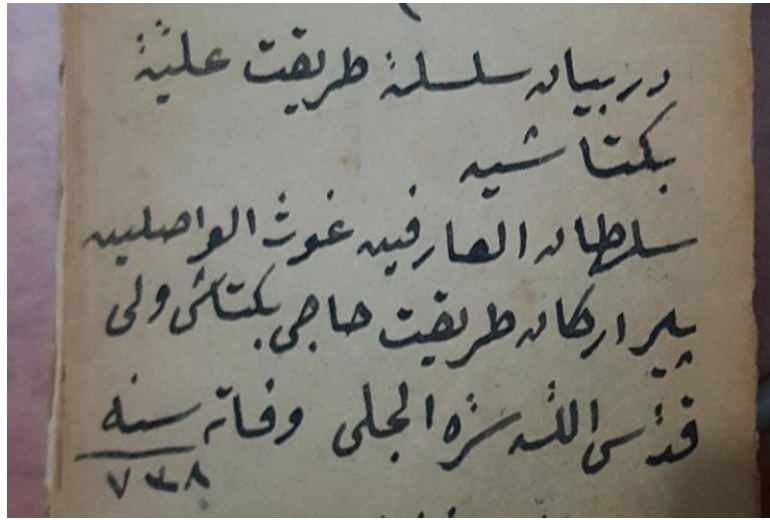 در بیان سلسلهٔ طریقت علیهٔ
بكتاشیه
سلطان العارفین غوث الواصلین
پیر اركان طریقت حاجی بكتاش ولی
قدّس اللّه سرّه الجلی وفاته سنه
٧٣٨